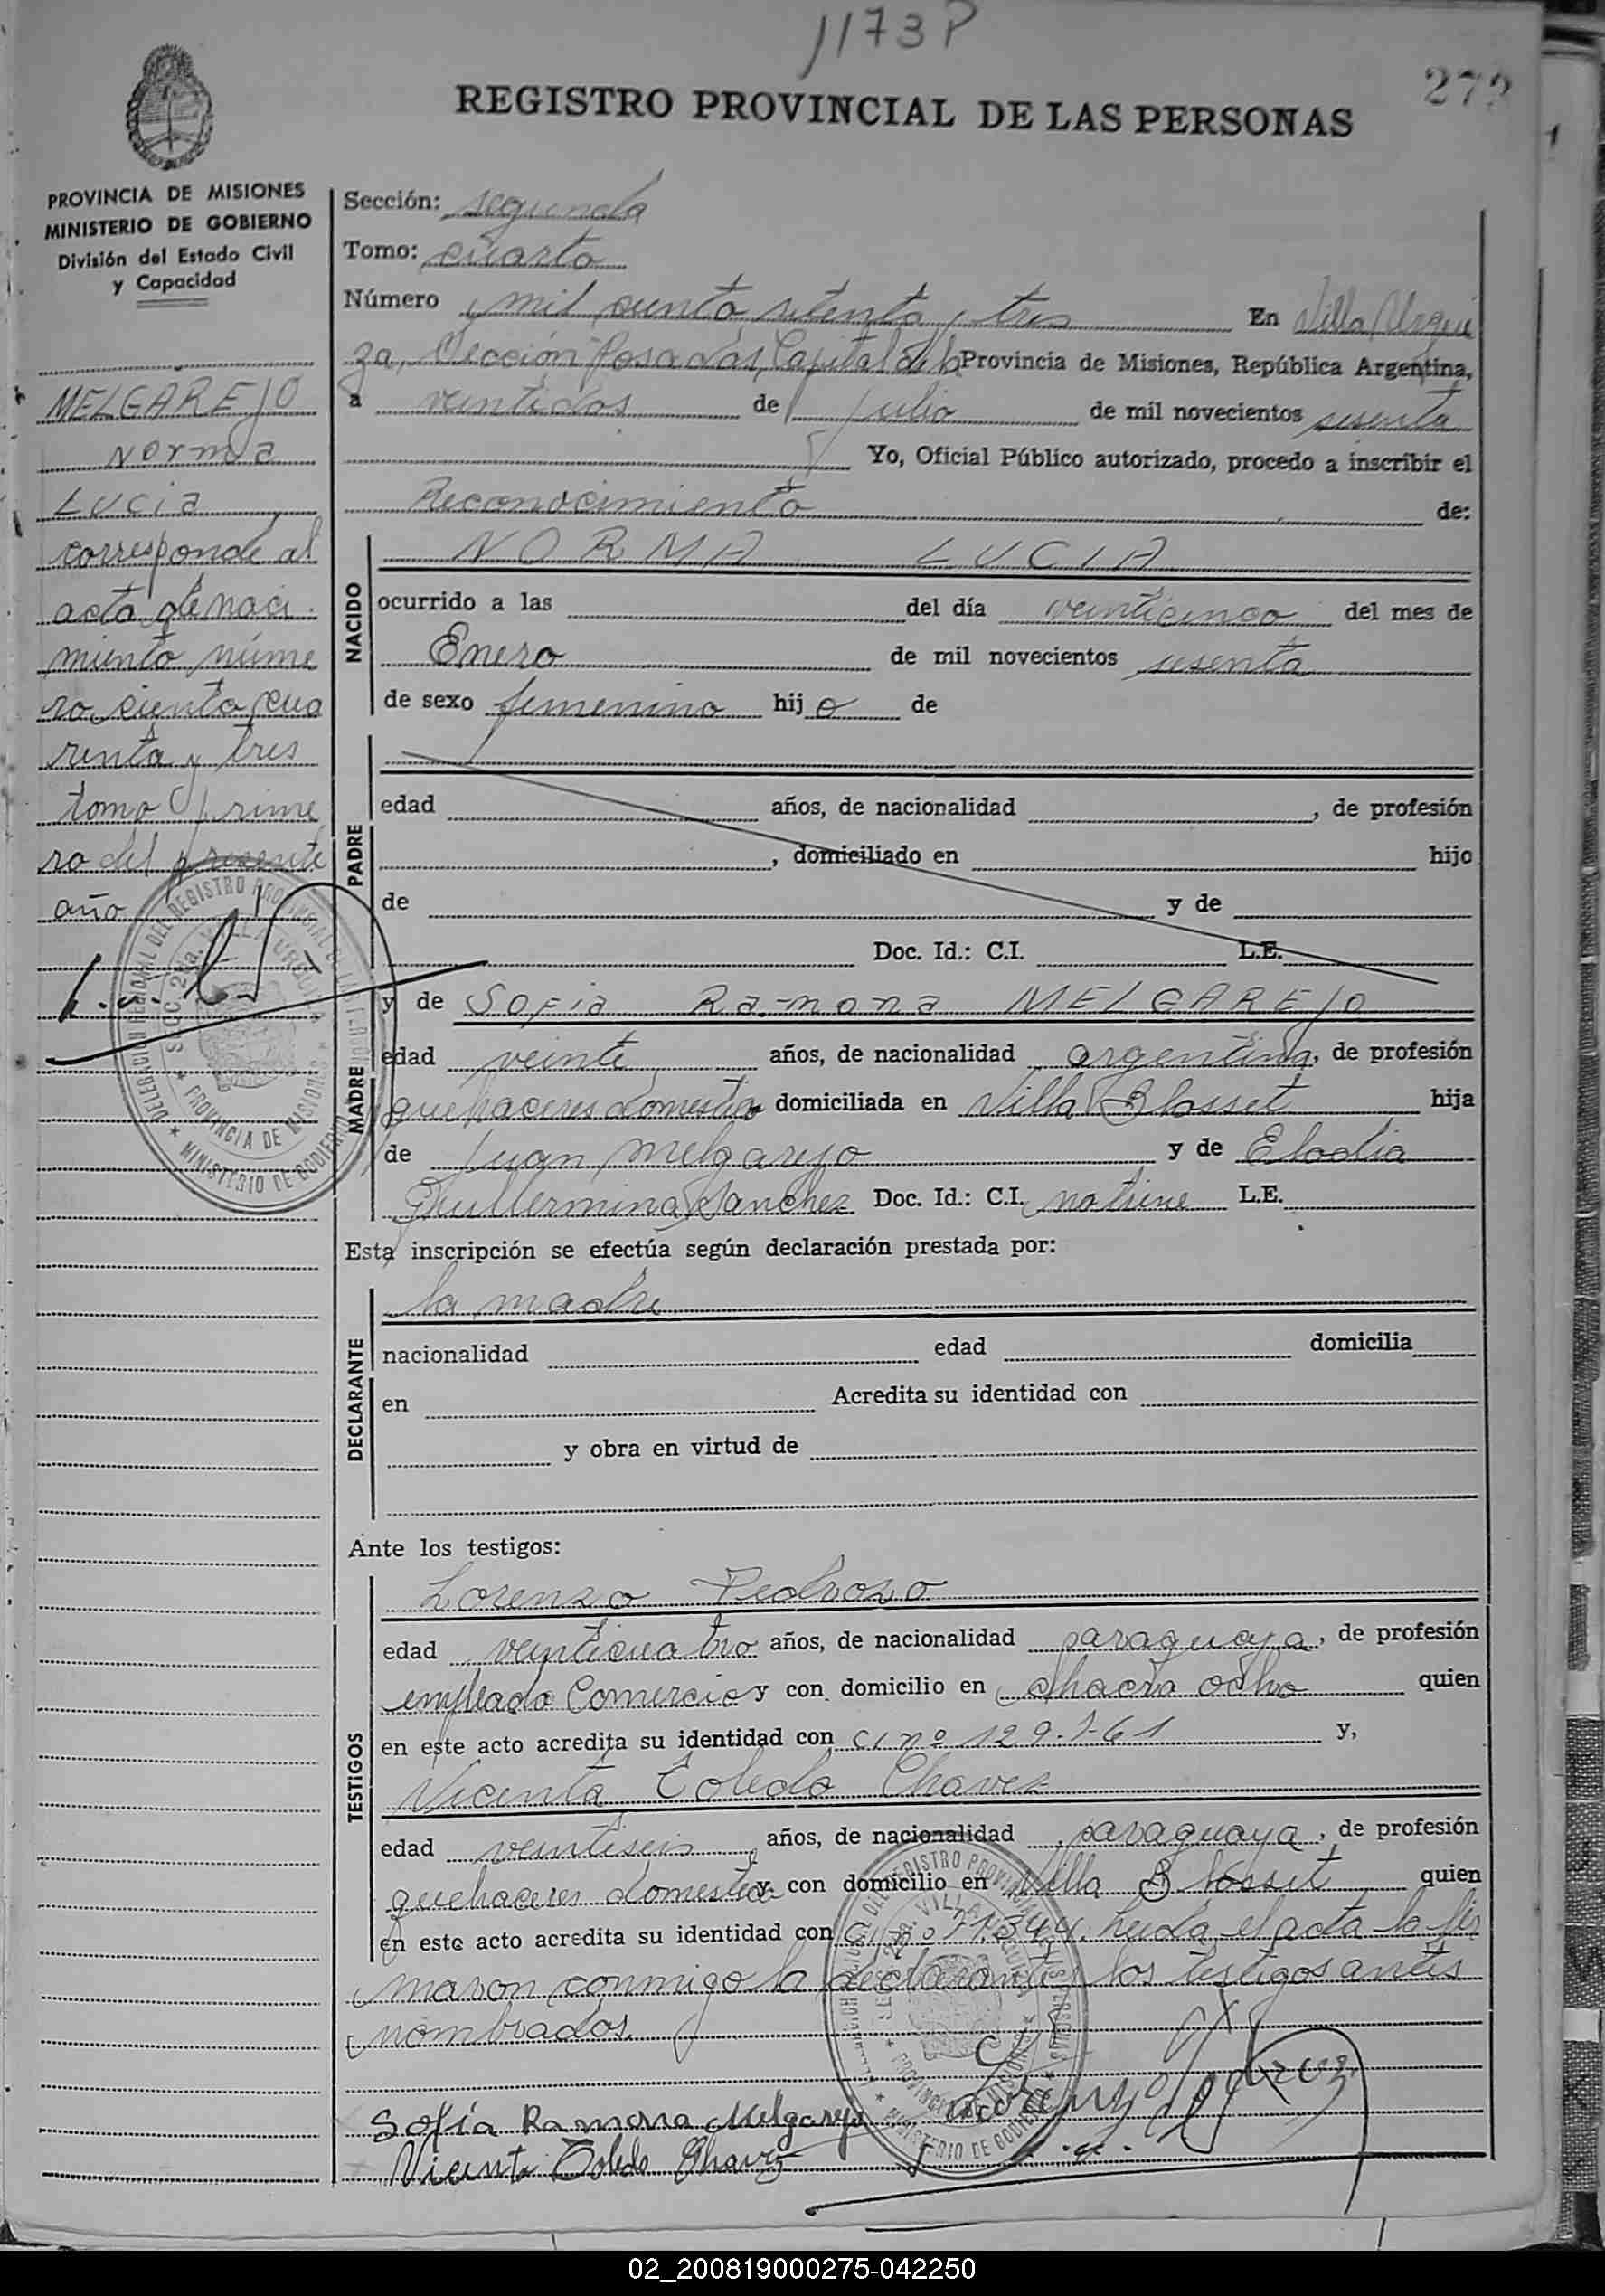 1173 P
272
REGISTRO PROVINCIAL DE LAS PERSONAS
PROVINCIA DE MISIONES
MINISTERIO DE GOBIERNO
División del Estado Civil
y Capacidad
MELGAREJO
Norma
Lucia
corresponde al
acta de naci
miento núme
ro ciento cua
renta y tres
tomo prime
ro del presente
año
Sección: segunda
Tomo: cuarto
Número mil ciento setenta y tres En Villa Urqui
za, Sección Posadas, Capital de la Provincia de Misiones, República Argentina,
a veintidos de julio de mil novecientos sesenta
Yo, Oficial Público autorizado, procedo a inscribir el
Reconocimiento de:
NACIDO
NORMA LUCIA
ocurrido a las del día veinticinco del mes de
Enero de mil novecientos sesenta
de sexo femenino hij a de
PADRE
edad años, de nacionalidad , de profesión
, domiciliado en hijo
de y de
Doc. Id.: C.I. L.E.
MADRE
y de Sofia Ramona MELGAREJO
edad veinte años, de nacionalidad argentina, de profesión
quehaceres domestico domiciliada en Villa Blosset hija
de Juan Melgarejo y de Elodia
Guillermina Sanchez Doc. Id.: C.I. no tiene L.E.
Esta inscripción se efectúa según declaración prestada por:
DECLARANTE
la madre
nacionalidad edad domicilia
en Acredita su identidad con
y obra en virtud de
Ante los testigos:
TESTIGOS
Lorenzo Pedrozo
edad veinticuatro años, de nacionalidad paraguaya, de profesión
empleado Comercio y con domicilio en chacra ocho quien
en este acto acredita su identidad con CI nº 129.761 y,
Vicenta Toledo Chavez
edad veintiseis años, de nacionalidad paraguaya, de profesión
quehaceres domestico y con domicilio en Villa Blosset quien
en este acto acredita su identidad con C.I. nº 71.344. Leida el acta la fir
maron conmigo la declarante y los testigos antes
nombrados.
Sofía Ramona Melgarejo Lorenzo Pedrozo
Vicenta Toledo Chavez
DELEGACION REGIONAL DEL REGISTRO PROVINCIAL DE LAS PERSONAS
SECC. 2da. VILLA URQUIZA
PROVINCIA DE MISIONES
MINISTERIO DE GOBIERNO
02_200819000275-042250